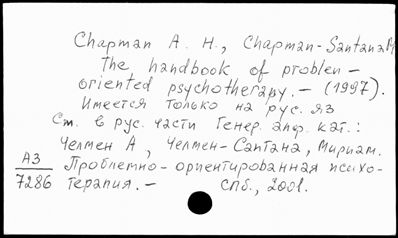 Chapman A. H., Chapman-Santana M
The handbook of problem-
oriented psychotherapy. – (1997).
Имеется только на рус. яз
См. в рус. части Генер. алф. кат.:
Челмен А, Челмен-Сантана, Мириам.
АЗ Проблемно-ориентированная психо-
7286 терапия. – Спб., 2001.